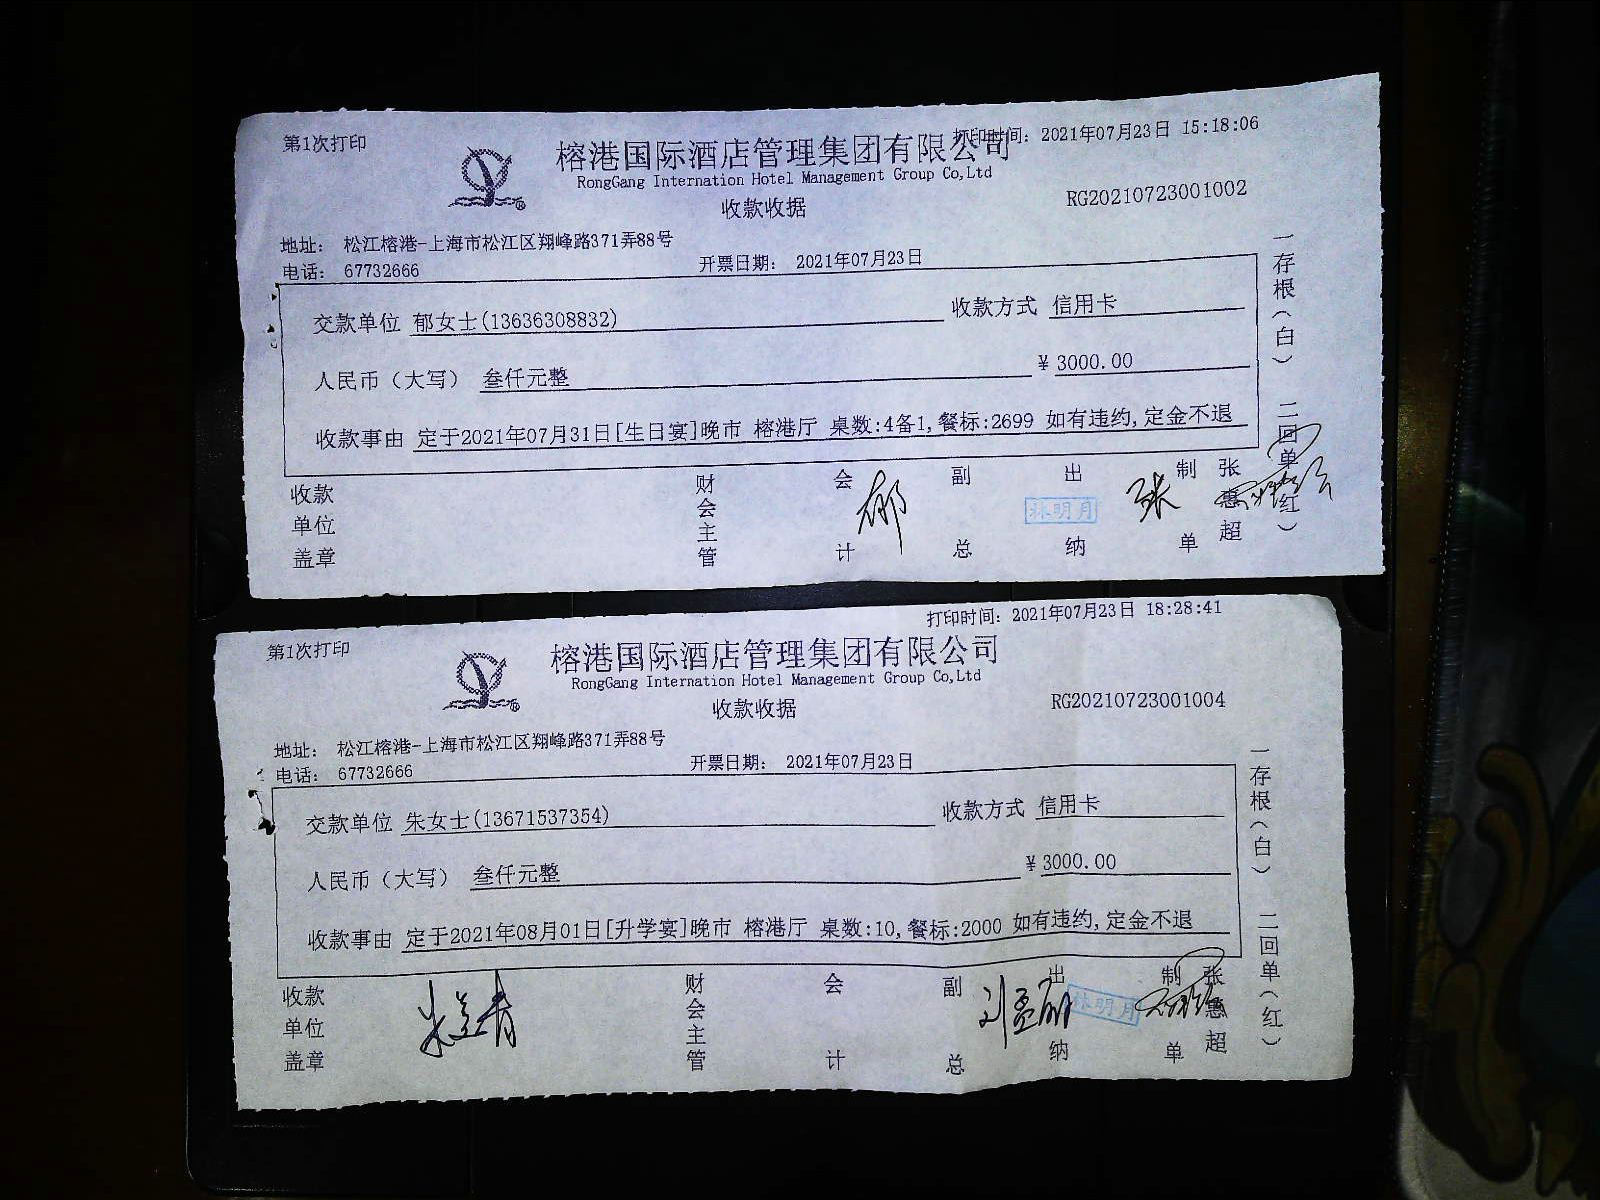 第1次打印
打印时间: 2021年07月23日 15:18:06
榕港国际酒店管理集团有限公司
RongGang Internation Hotel Management Group Co,Ltd
收款收据
RG20210723001002
地址: 松江榕港-上海市松江区翔峰路371弄88号
电话: 67732666
开票日期: 2021年07月23日
交款单位 郁女士(13636308832) 收款方式 信用卡
人民币（大写） 叁仟元整 ¥ 3000.00
收款事由 定于2021年07月31日[生日宴]晚市 榕港厅 桌数:4备1,餐标:2699 如有违约,定金不退
收款单位盖章 财会主管 会计 郁 副总 出纳 林明月 张 制单 张惠超
一存根（白） 二回单（红）
第1次打印
打印时间: 2021年07月23日 18:28:41
榕港国际酒店管理集团有限公司
RongGang Internation Hotel Management Group Co,Ltd
收款收据
RG20210723001004
地址: 松江榕港-上海市松江区翔峰路371弄88号
电话: 67732666
开票日期: 2021年07月23日
交款单位 朱女士(13671537354) 收款方式 信用卡
人民币（大写） 叁仟元整 ¥ 3000.00
收款事由 定于2021年08月01日[升学宴]晚市 榕港厅 桌数:10,餐标:2000 如有违约,定金不退
收款单位盖章 财会主管 会计 副总 出纳 林明月 制单 张惠超
一存根（白） 二回单（红）